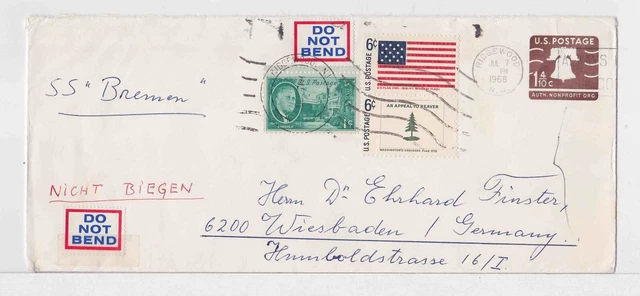 DO
NOT
BEND
SS "Bremen"
U.S. Postage
6¢
U.S. POSTAGE
6¢
U.S. POSTAGE
AN APPEAL TO HEAVEN
WASHINGTON'S CRUISERS FLAG 1775
RIDGEWOOD
1968
U.S. POSTAGE
1 4/10 c
AUTH. NONPROFIT ORG
NICHT BIEGEN
DO
NOT
BEND
Herrn Dr Ehrhard Finster,
6200 Wiesbaden / Germany.
Humboldstrasse 16/I